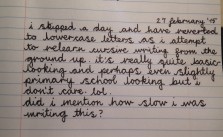 27 february '15
i skipped a day and have reverted
to lowercase letters as i attempt
to relearn cursive writing from the
ground up. it's really quite basic
looking and perhaps even slightly
primary school looking but i
don't care lol.
did i mention how slow i was
writing this?